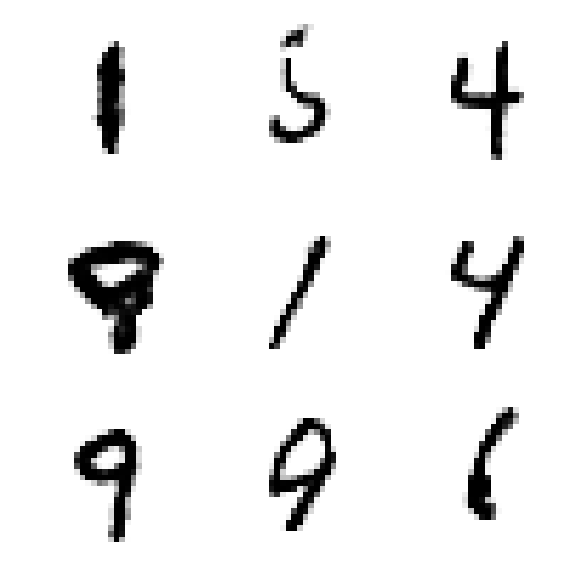 1 5 4
8 1 4
9 9 6